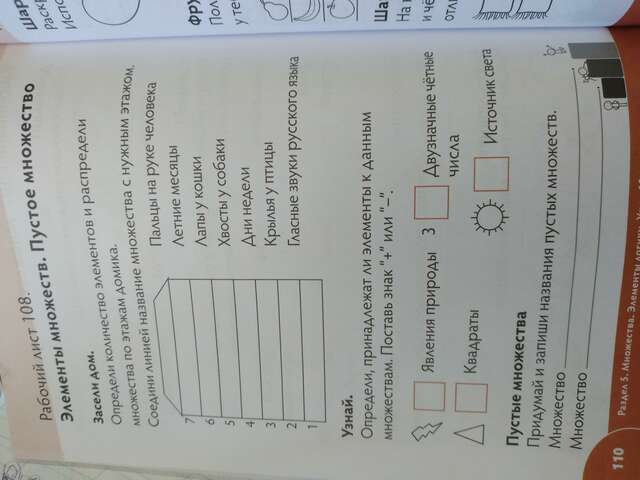 ШАР
Раскр
Испо
ФРУ
Пол
у тен
Ша
На
и чё
отли
Рабочий лист 108.
Элементы множеств. Пустое множество
Засели дом.
Определи количество элементов и распредели
множества по этажам домика.
Соедини линией название множества с нужным этажом.
7
6
5
4
3
2
1
Пальцы на руке человека
Летние месяцы
Лапы у кошки
Хвосты у собаки
Дни недели
Крылья у птицы
Гласные звуки русского языка
Узнай.
Определи, принадлежат ли элементы к данным
множествам. Поставь знак "+" или "–".
Явления природы
3
Двузначные чётные
числа
Квадраты
Источник света
Пустые множества
Придумай и запиши названия пустых множеств.
Множество
Множество
110
Раздел 5. Множества. Элементы